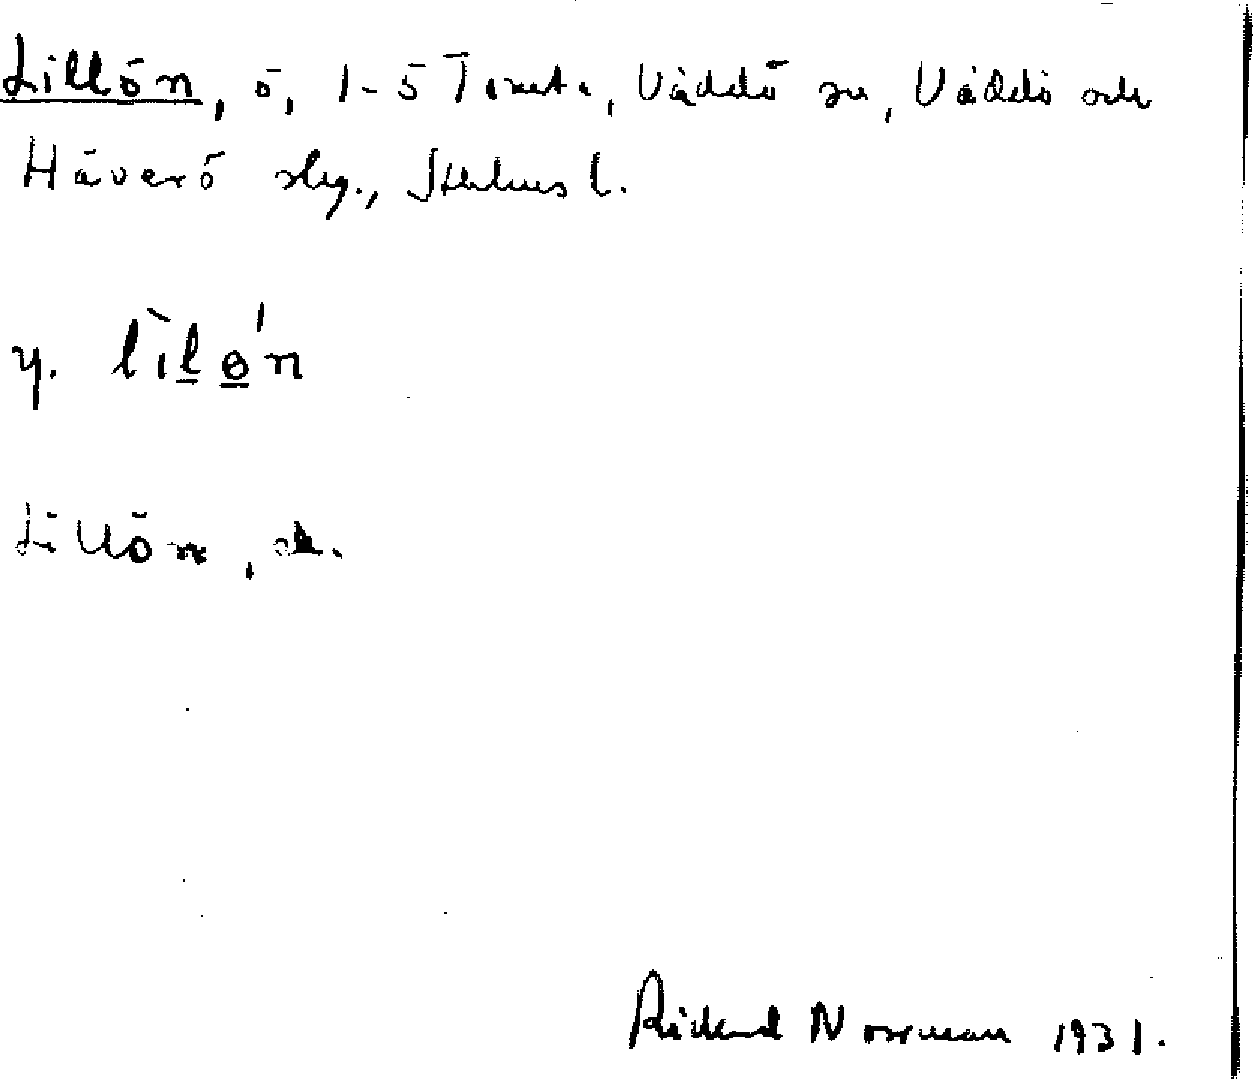 Lillön, ö, 1-5 Tomta, Väddö sn, Väddö och
Häverö slg., Sthlms l.
y. lìl ǿn
Lillön, ek.
Rickard Norrman 1931.